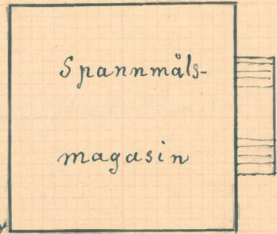 Spannmåls-
magasin